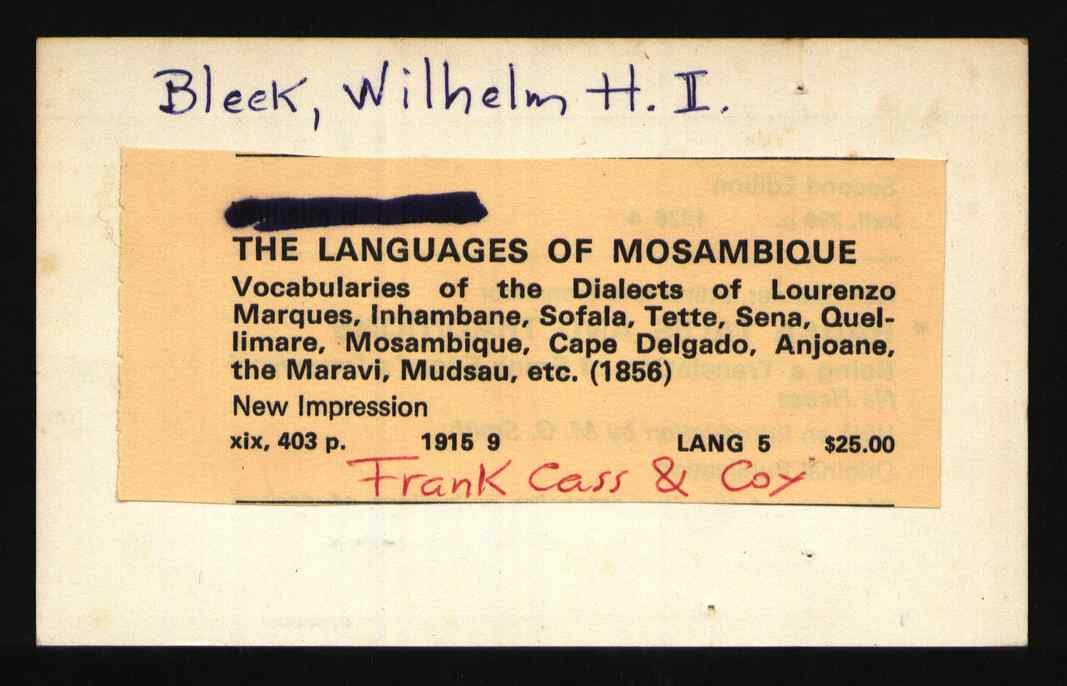 Bleek, Wilhelm H. I.
THE LANGUAGES OF MOSAMBIQUE
Vocabularies of the Dialects of Lourenzo
Marques, Inhambane, Sofala, Tette, Sena, Quel-
limare, Mosambique, Cape Delgado, Anjoane,
the Maravi, Mudsau, etc. (1856)
New Impression
xix, 403 p. 1915 9 LANG 5 $25.00
Frank Cass & Coy